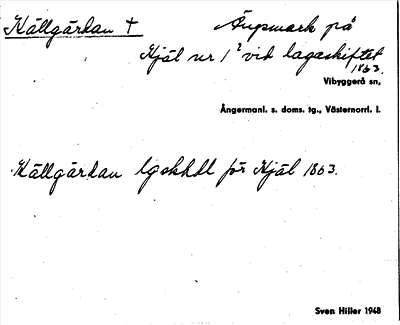 Källgärdan † Ängsmark på
Kjäl nr 1² vid lagaskiftet
1863.
Vibyggerå sn,
Ångermanl. s. doms. tg., Västernorrl. l.
Källgärdan lgskhdl för Kjäl 1863.
Sven Hiller 1948